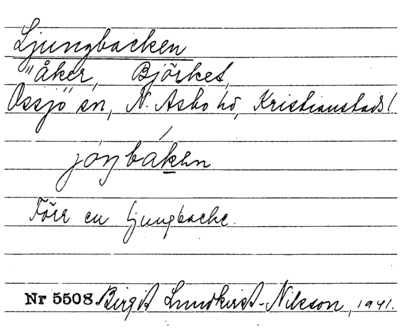 Ljungbacken
Åker, Björket,
Össjö sn, N. Åsbo hd, Kristianstads l
jöŋbáken
Förr en ljungbacke.
Nr 5508. Birgit Lundkvist-Nilsson, 1941.